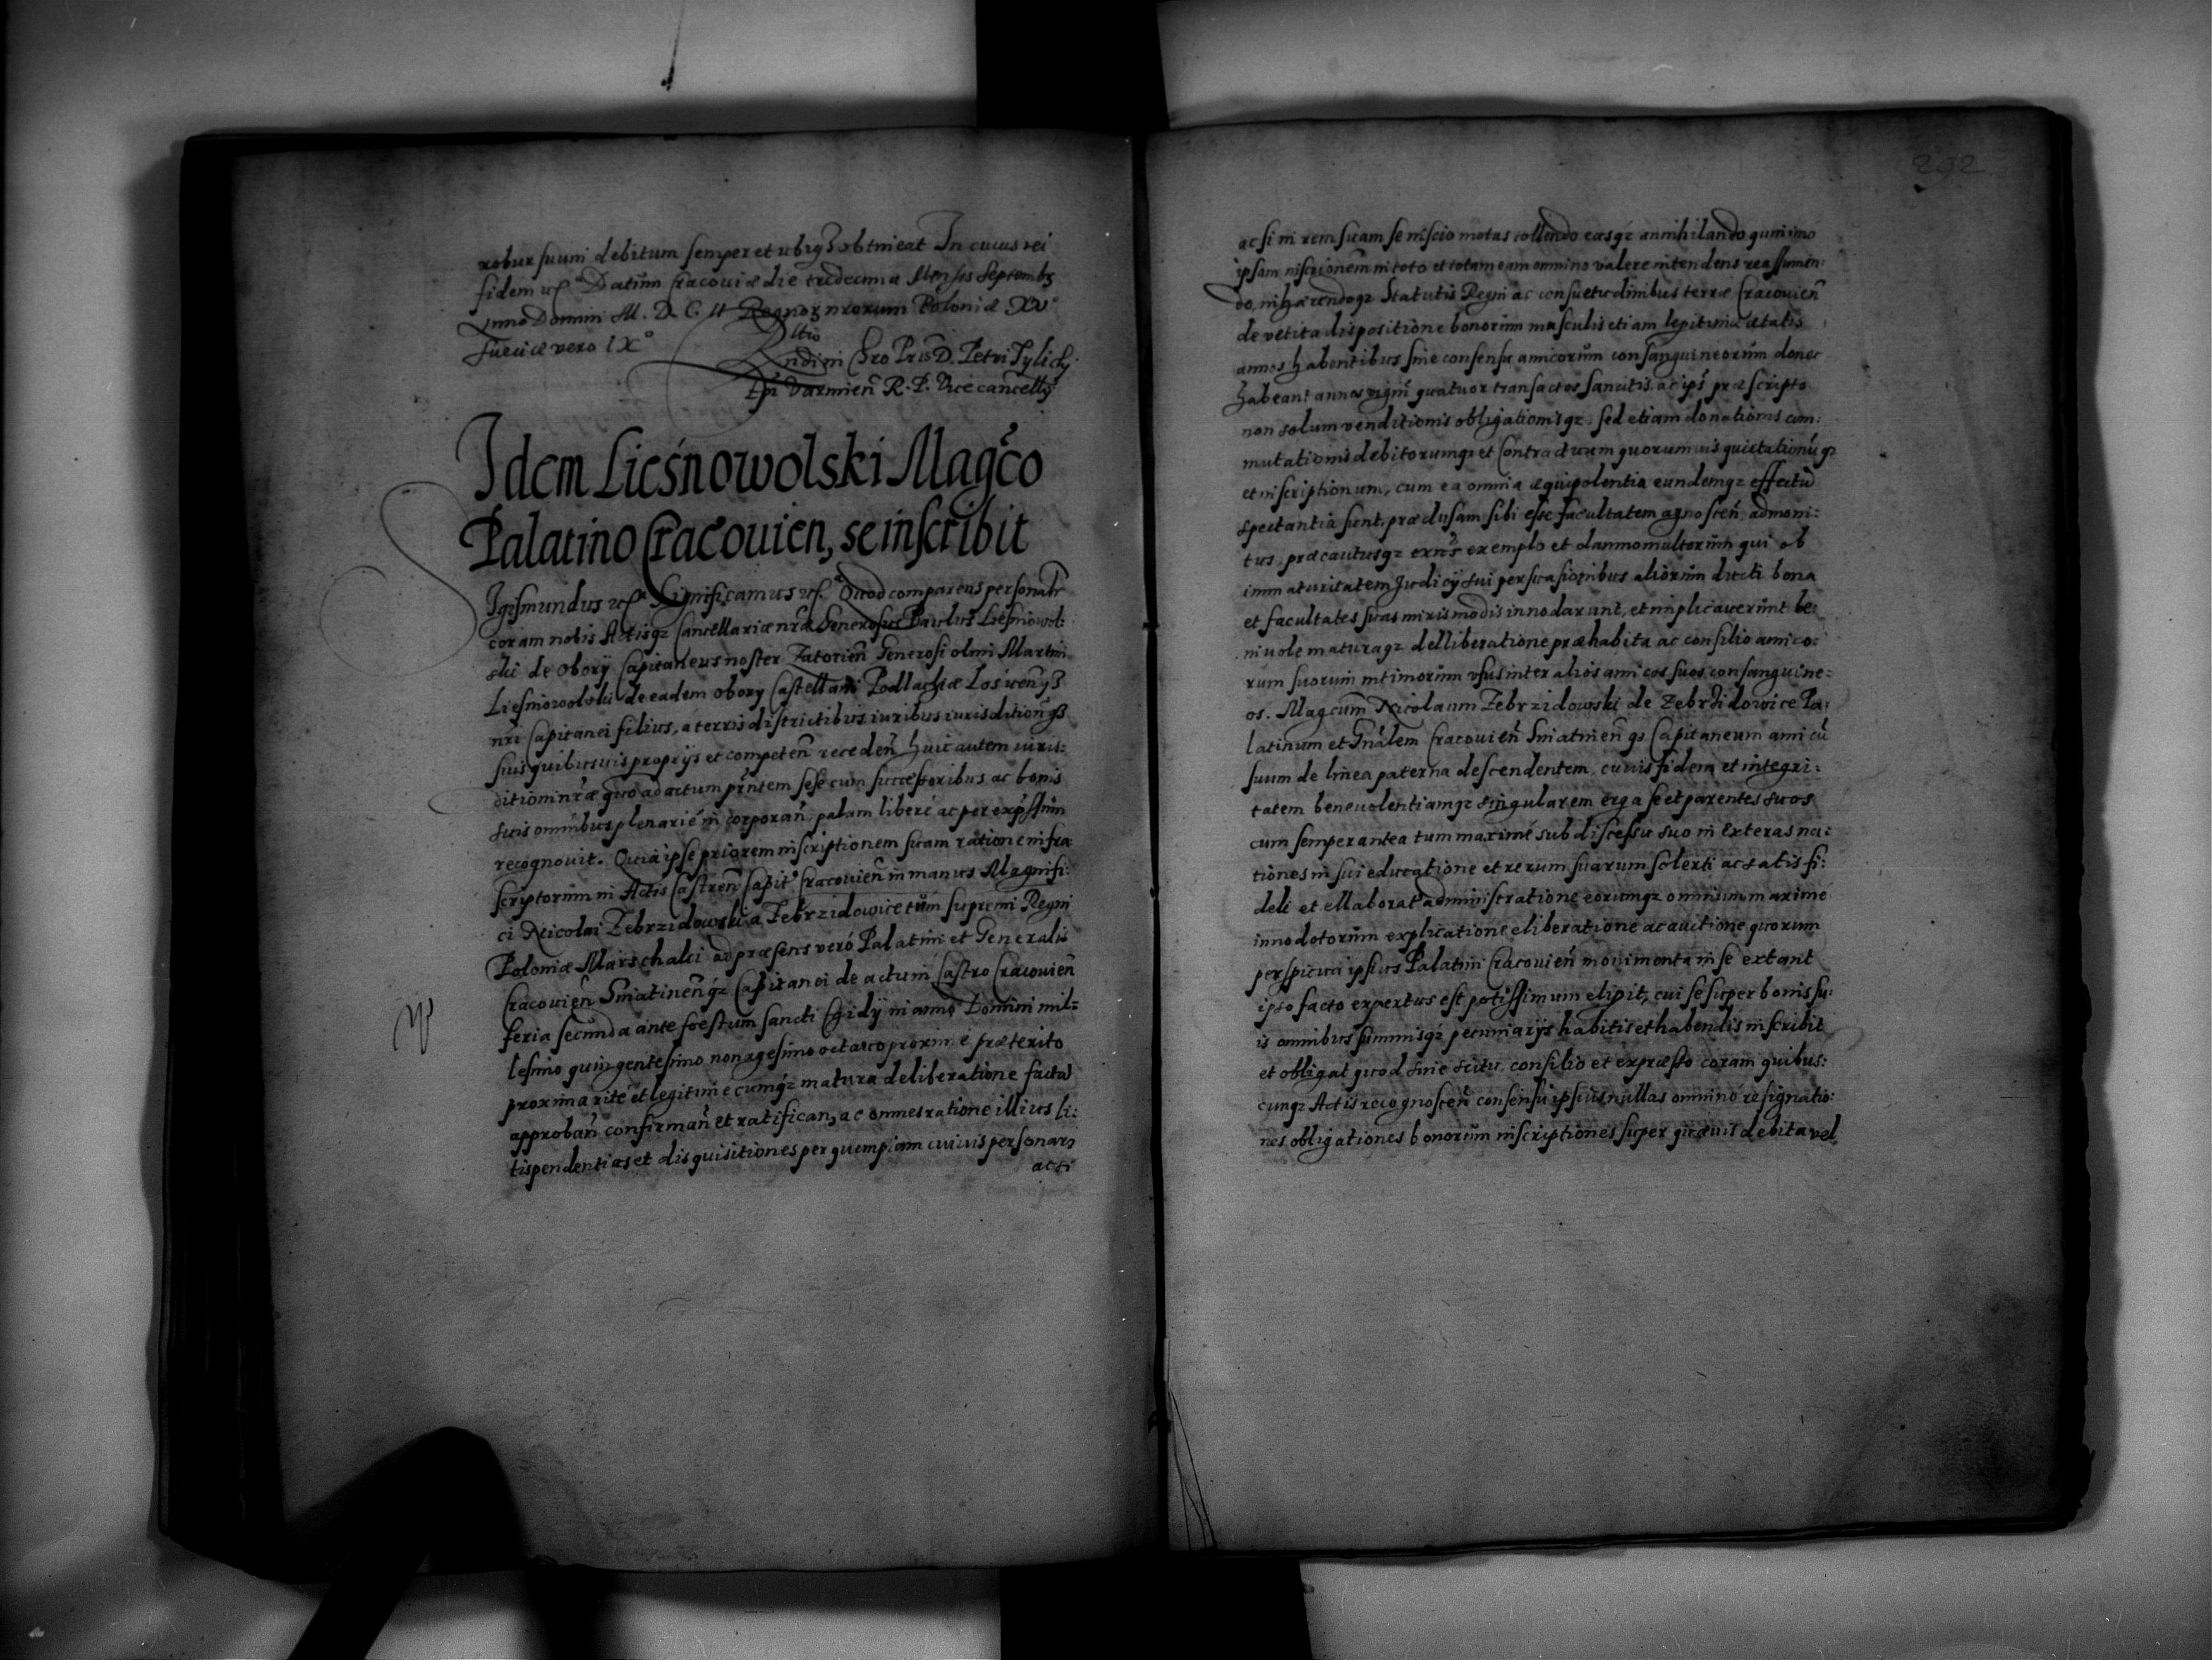 robur suum debitum semper et ubiqꝫ obtineat In cuius rei
fidem etc. Datum Cracoviæ die tredecima Mensis Septembꝫ
Anno Domini M. D. C. II Regnorꝫ nrorum Poloniæ XVº
Sueciæ vero IXº
Rndi in Chro Pris D. Petri Tylicki
Epi Varmien̄ R. P. Vicecancellꝫ
Idem Lieśnowolski Magco
Palatino Cracouien, se inscribit
Igismundus etc. Significamus etc. Quod comparens personalr
coram nobis Actisqꝫ Cancellariæ nræ Generosus Paulus Liesniowol:
ski de Obory Capitaneus noster Zatorien̄ Generosi olim Martini
Liesniowolski de eadem obory Castellani Podlachiæ Losicen̄qꝫ
nri Capitanei filius, a terris districtibus iuribus iurisdition̄qꝫ
suis quibusuis proprijs et competen̄ receden̄ huic autem iuris:
ditioni nræ quo ad actum prntem sese cum successoribus ac bonis
suis omnibus plenarié incorporan̄, palam liberé ac per expssum
recognouit. Quia ipse priorem inscriptionem suam ratione infra
scriptorum in Actis Castren̄ Capit Cracouien̄ in manus Magnifi:
ci Nicolai Zebrzidowski a Zebrzidowice tum supremi Regni
Poloniæ Marschalci ad præsens veró Palatini et Generalis
Cracouien̄ Sniatinen̄qꝫ Capitanei de actum Castro Cracouien̄
feria secunda ante foestum sancti Egidij in anno Domini mil=
lesimo quingentesimo nonagesimo octauo proxime præterito
proxima rite et legitimé cumqꝫ matura deliberatione facta
approban̄ confirman̄ et ratifican, ac omnes ratione illius li:
tispendentias et disquisitiones per quempiam cuiuis personas
ac si
292
ac si in rem suam se inscio motas tollendo easqꝫ annihilando quinimo
ipsam inscrionem in toto et totam eam omnino valere intendens reassumen:
do, inhærendoqꝫ Statutis Regni ac consuetudinibus terræ Cracouien̄
de vetita dispositione bonorum masculis etiam legitimæ ætatis
annos habentibus sine consensu amicorum consanguineorum donec
habeant annos viginti quatuor transactos sancitis, ac ips præscripto
non solum venditionis obligationisqꝫ, sed etiam donationis com:
mutationis debitorumqꝫ et Contractuum quorumuis quietationū qꝫ
et inscriptionum, cum ea omnia æquipolentia eundemqꝫ effectū
spectantia sunt, præclusam sibi esse facultatem agnoscen̄, admoni:
tus, præcautusqꝫ exemplo et damno multorum qui ob
immaturitatem Judicij sui persuasionibus aliorum ducti bona
et facultates suas miris modis innodarunt, et implicauerunt be:
niuole maturaqꝫ delliberatione præhabita ac consilio amico:
rum suorum intimorum vsus inter alios amicos suos consanguine:
os. Magcum Nicolaum Zebrzidowski de Zebrzidowice Pa:
latinum et Gnalem Cracouien̄ Sniatinen̄ qꝫ Capitaneum amicū
suum de linea paterna descendentem, cuius fidem et integri:
tatem beneuolentiamqꝫ singularem erga se et parentes suos
cum semper antea tum maximé sub discessu suo in exteras na:
tiones in sui educatione et rerum suarum solerti ac satis fi:
deli et ellaborata administratione eorumqꝫ omnium maximé
innodotorum explicatione eliberatione ac auctione quorum
perspicua ipsius Palatini Cracouien̄ monimenta in se extant
ipso facto expertus est potissimum elegit, cui se super bonis su:
is omnibus summisqꝫ pecuniarijs habitis et habendis inscribit
et obligat quod sine scitu, consilio et expræsso coram quibus:
cunqꝫ Actis recognoscen̄ consensu ipsius nullas omninó resignatio:
nes obligationes bonorum inscriptiones super quæuis debita vel